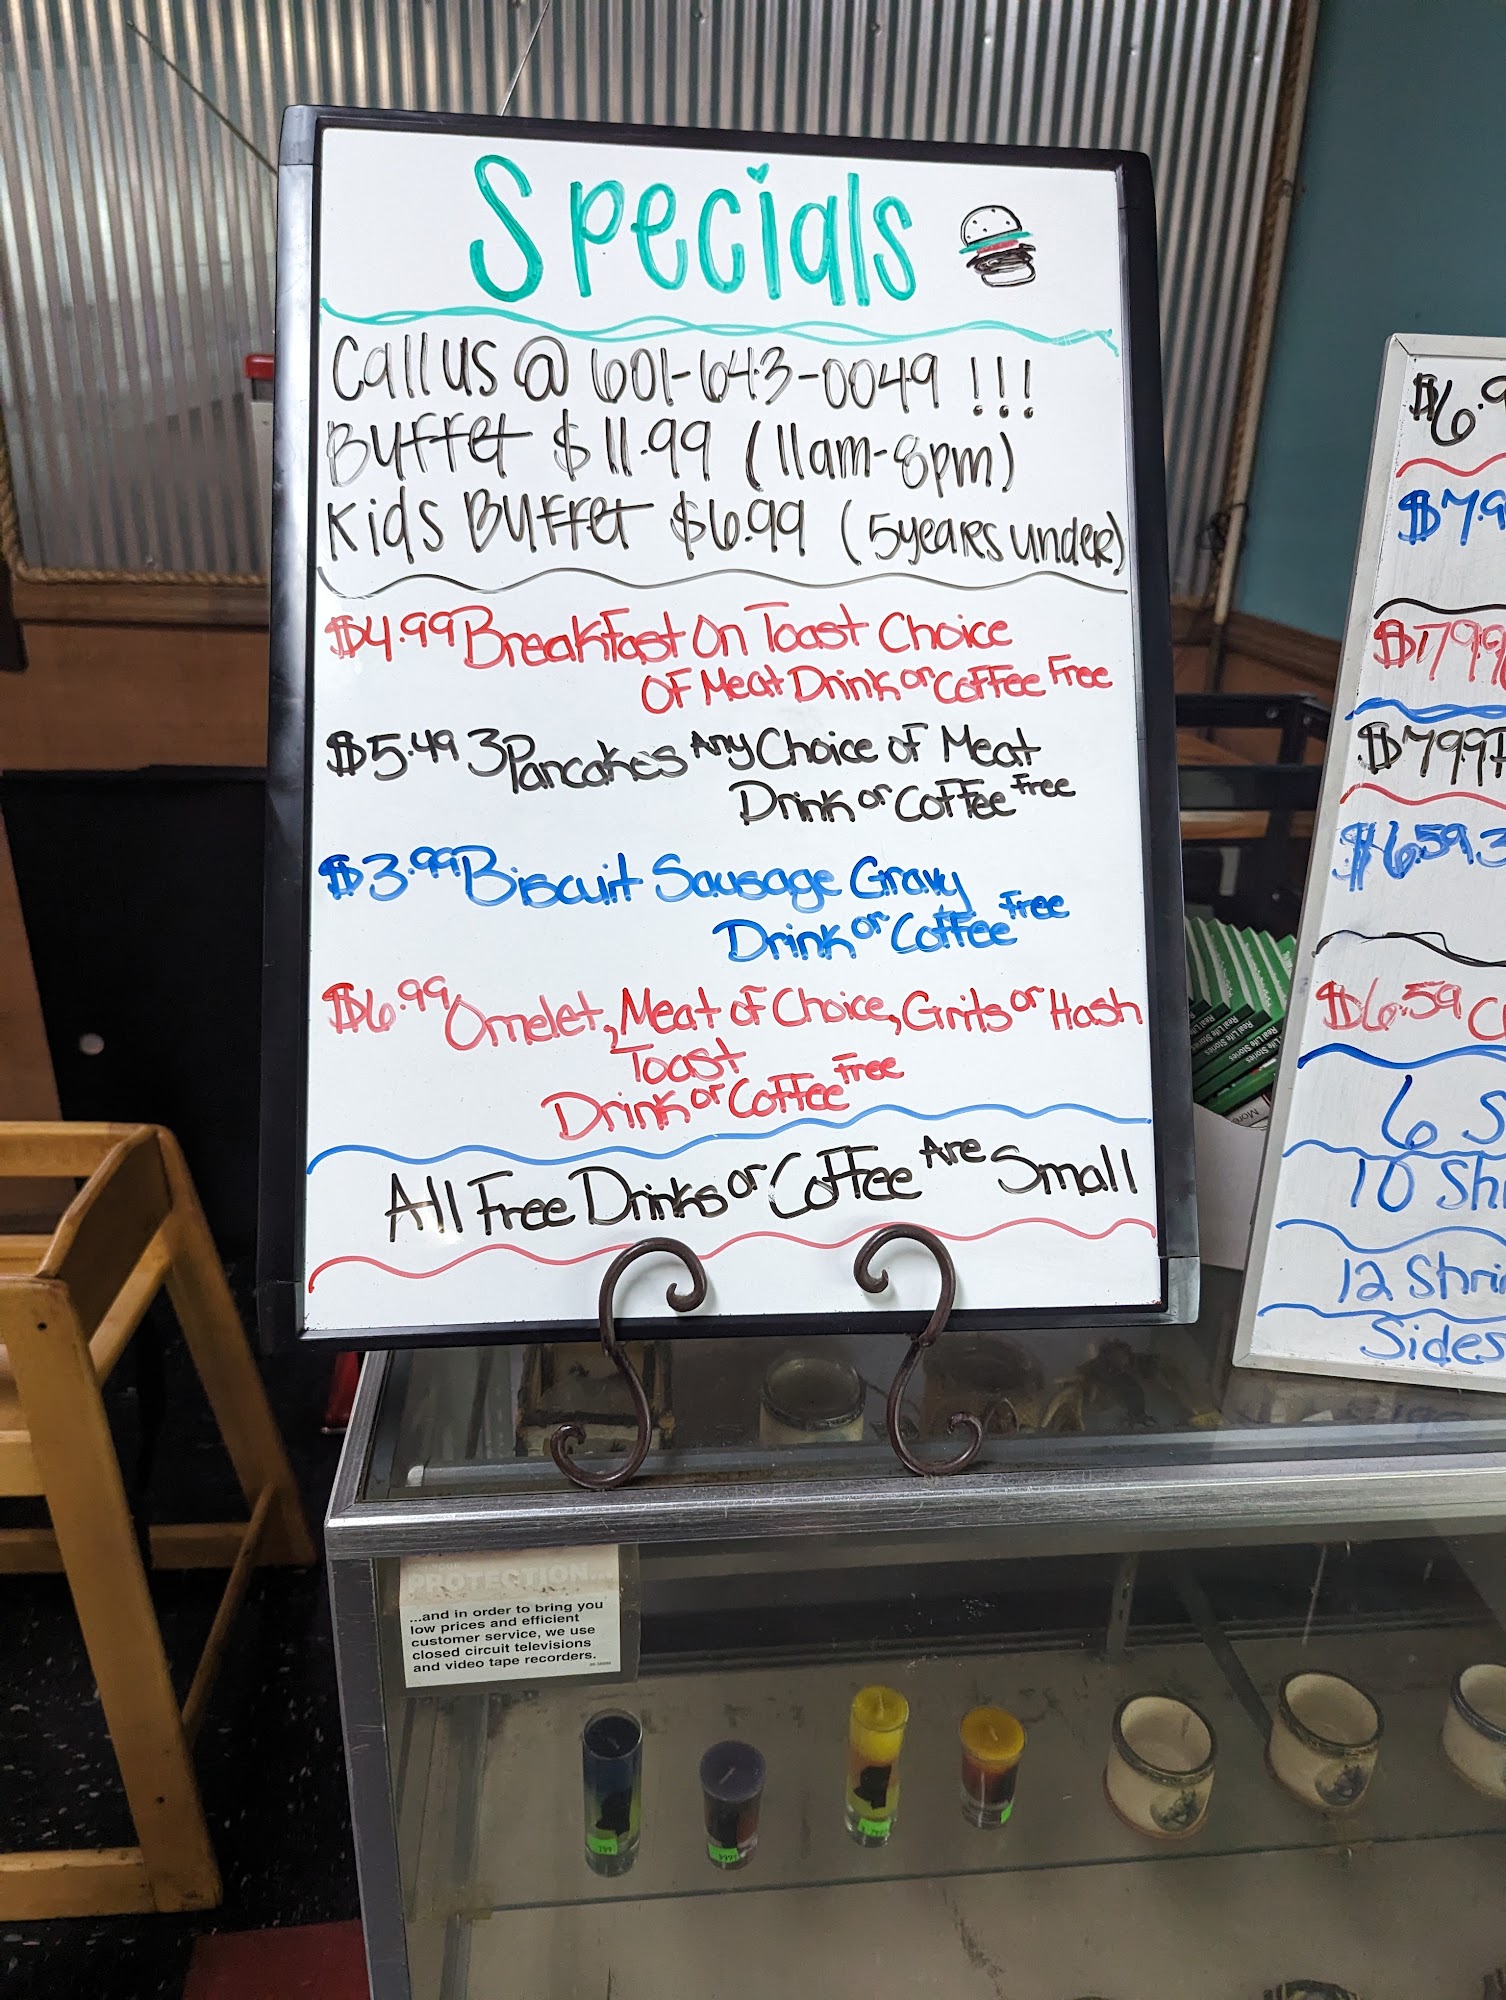 Specials
Call us @ 601-643-0049 !!!
Buffet $11.99 (11am-8pm)
Kids Buffet $6.99 (5years under)
$4.99 Breakfast On Toast Choice
Of Meat Drink or Coffee Free
$5.49 3 Pancakes Any Choice of Meat
Drink or Coffee Free
$3.99 Biscuit Sausage Gravy
Drink or Coffee Free
$6.99 Omelet, Meat of Choice, Grits or Hash
Toast
Drink or Coffee Free
All Free Drinks or Coffee Are Small
$6.9
$7.9
$799
$799
$6.59 3
$6.59 C
6 S
10 Shr
12 Shri
Sides
Real Life Stories
Real Life Stories
Real Life Stories
PROTECTION...
...and in order to bring you
low prices and efficient
customer service, we use
closed circuit televisions
and video tape recorders.